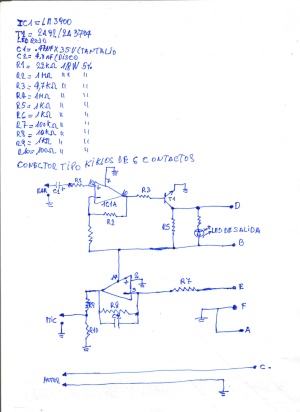 IC1 = LM3900
T1 = 2A98/2A3704
LED ROJO
C1 = .47MF X 35V (TANTALIO
R1 = 22KΩ 1/8W 5%
R2 = 1MΩ " " "
R3 = 4,7KΩ " "
R4 = 1MΩ " "
R5 = 1KΩ " "
R6 = 1KΩ " "
R7 = 100KΩ " "
R8 = 10KΩ " "
R9 = 1KΩ " "
R10= 100Ω " "
CONECTOR TIPO KIKLOS DE 6 CONTACTOS
EAR
C1
R1
7
IC1A
R2
R3
T1
R5
LED DE SALIDA
D
B
R7
E
R8
R9
MIC
R10
F
A
C
MOTOR